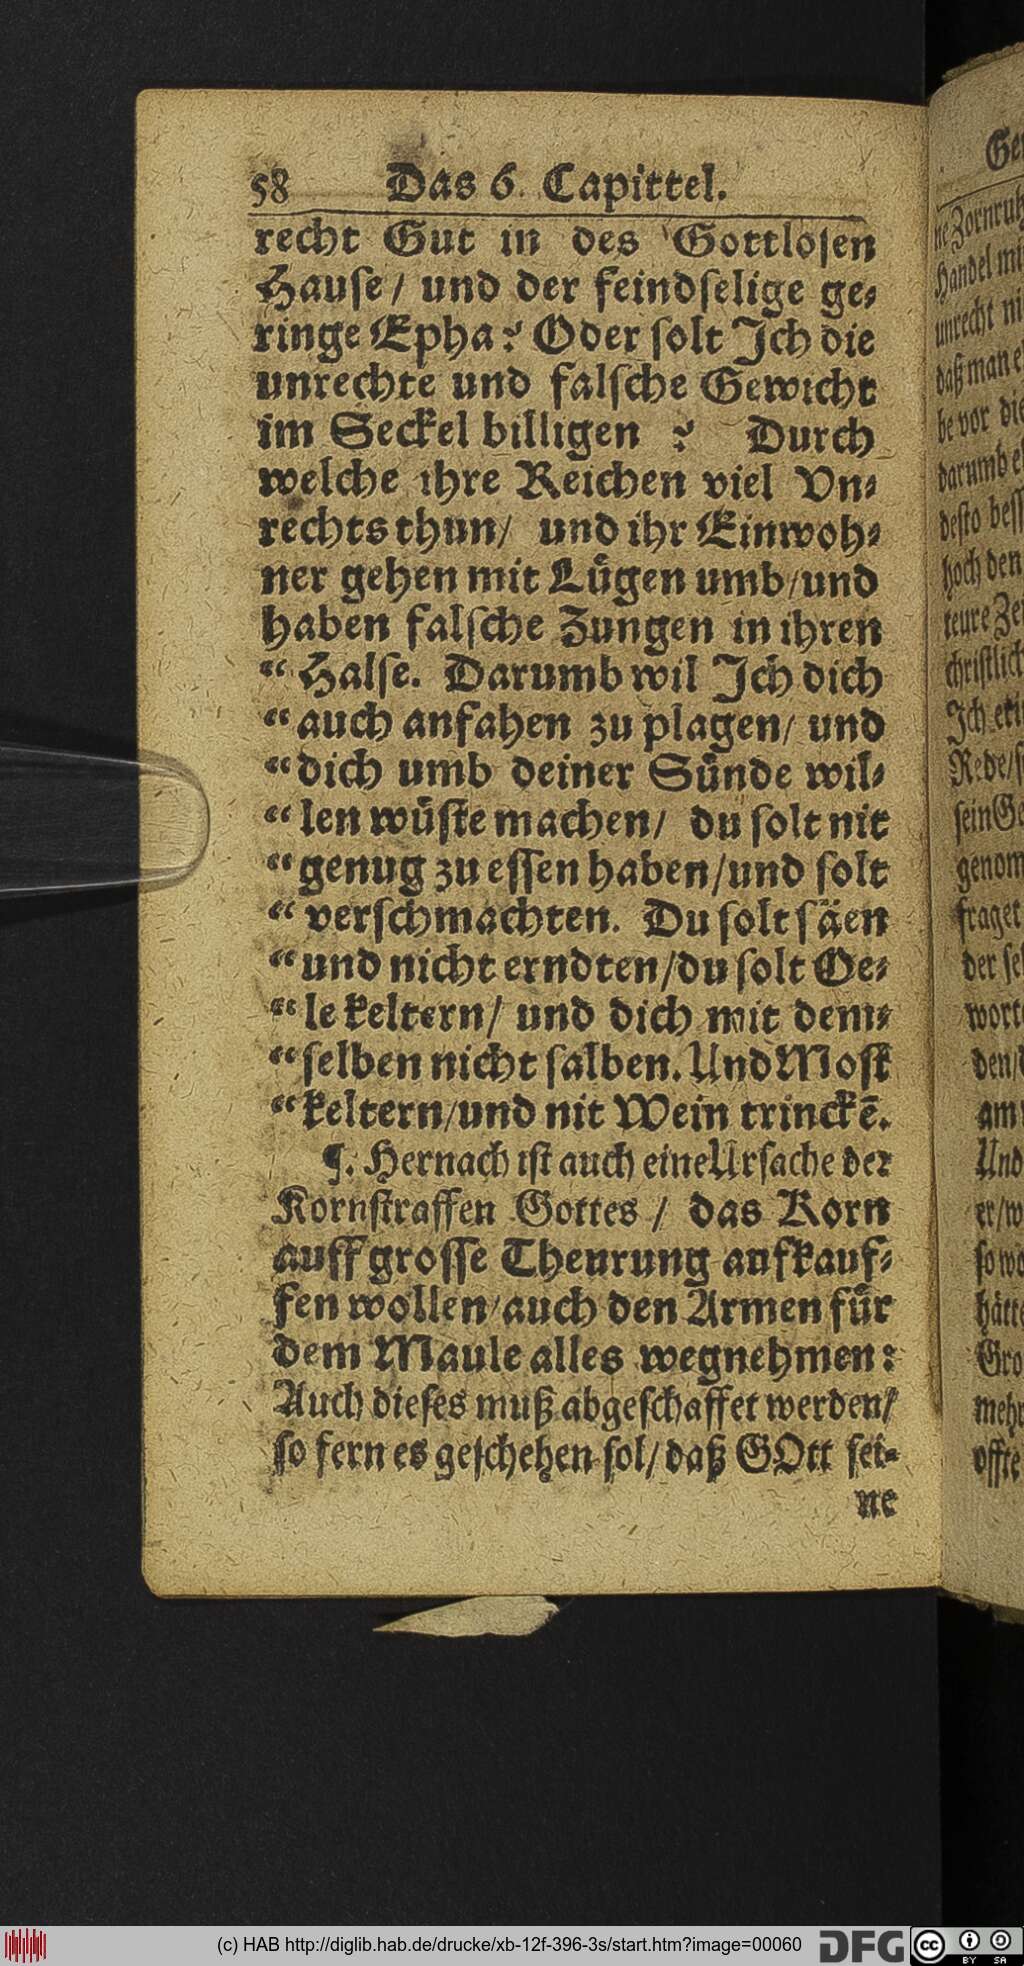 58 Das 6. Capittel.
recht Gut in des Gottlosen
Hause / und der feindselige ge-
ringe Epha? Oder solt Jch die
unrechte und falsche Gewicht
im Seckel billigen ? Durch
welche ihre Reichen viel Vn-
rechts thun / und ihr Einwoh-
ner gehen mit Lügen umb / und
haben falsche Zungen in ihren
“ Halse. Darumb wil Jch dich
“ auch anfahen zu plagen / und
“ dich umb deiner Sünde wil-
“ len wüste machen / du solt nit
“ genug zu essen haben / und solt
“ verschmachten. Du solt säen
“ und nicht erndten / du solt Oe-
“ le keltern / und dich mit dem-
“ selben nicht salben. Und Most
“ keltern / und nit Wein trinckē.
¶. Hernach ist auch eine Ursache der
Kornstraffen Gottes / das Korn
auff grosse Theurung aufkauf-
fen wollen / auch den Armen für
dem Maule alles wegnehmen:
Auch dieses muß abgeschaffet werden /
so fern es geschehen sol / daß GOtt sei-
ne
Ge
ne Zornruh
Handel mi
unrecht ni
daß man e
be vor die
darumb e
desto bess
hoch den
teure Ze
christlich
Jch
Rede / s
sein Ge
genom
fraget
der se
worte
den /
am
Und
er / w
so wo
hätte
Gro
mehr
offte
(c) HAB http://diglib.hab.de/drucke/xb-12f-396-3s/start.htm?image=00060 DFG cc BY SA